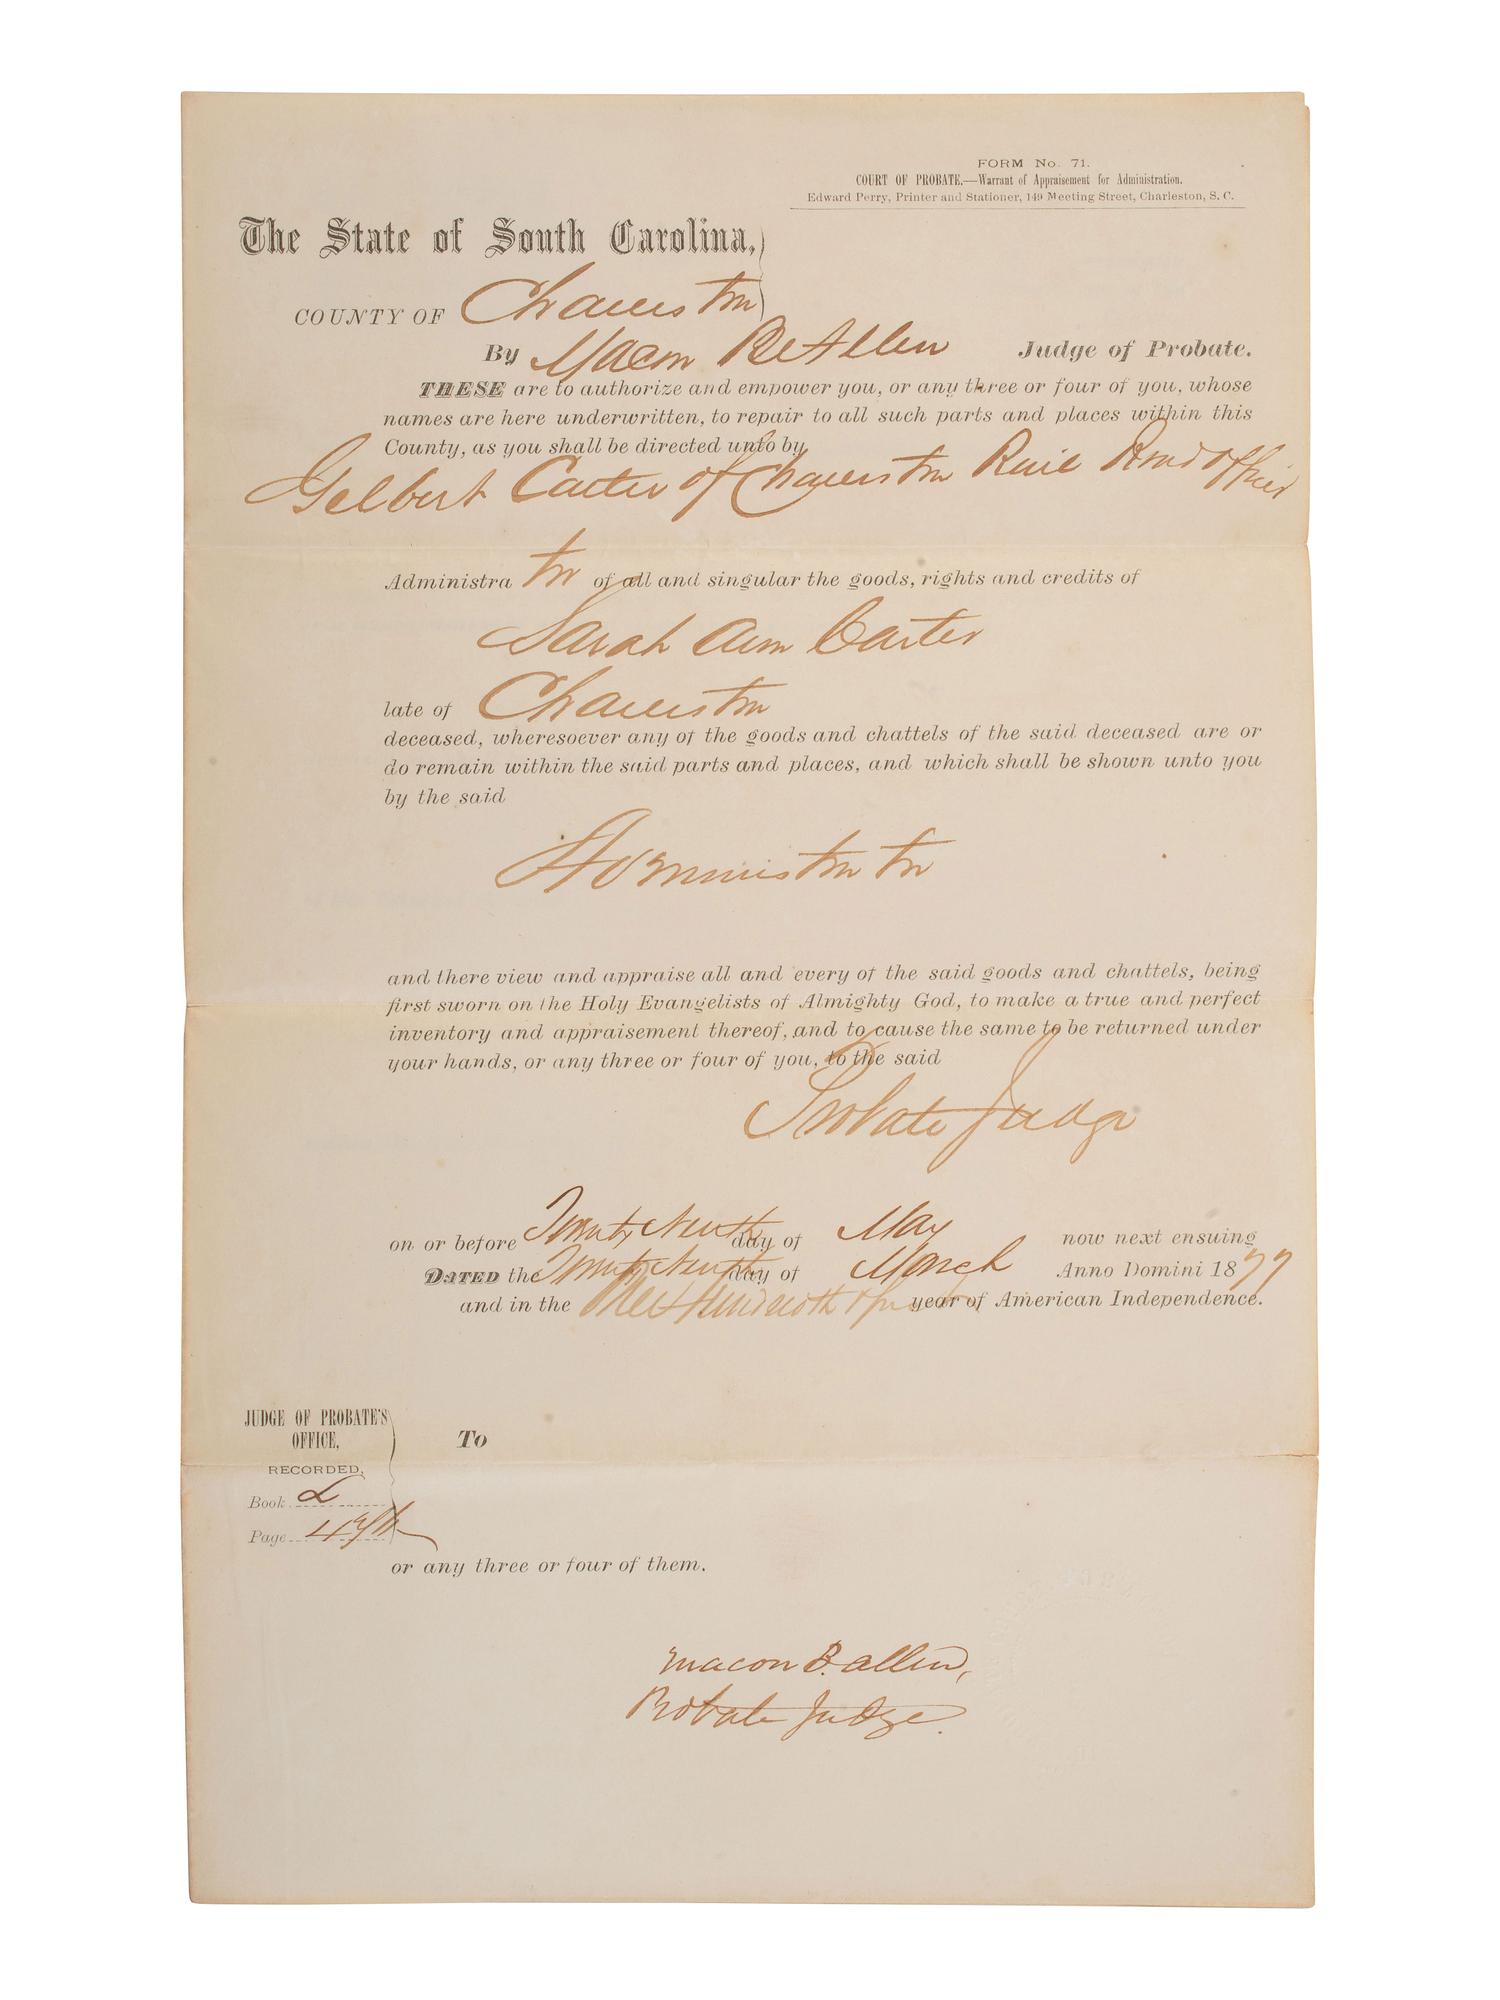 FORM No. 71.
COURT OF PROBATE.—Warrant of Appraisement for Administration.
Edward Perry, Printer and Stationer, 149 Meeting Street, Charleston, S. C.
The State of South Carolina,
COUNTY OF Charleston
By Macon B Allen Judge of Probate.
THESE are to authorize and empower you, or any three or four of you, whose
names are here underwritten, to repair to all such parts and places within this
County, as you shall be directed unto by
Gelbert Carter of Charleston Rail Road
Administrator of all and singular the goods, rights and credits of
Sarah Ann Carter
late of Charleston
deceased, wheresoever any of the goods and chattels of the said deceased are or
do remain within the said parts and places, and which shall be shown unto you
by the said
Administrator
and there view and appraise all and every of the said goods and chattels, being
first sworn on the Holy Evangelists of Almighty God, to make a true and perfect
inventory and appraisement thereof, and to cause the same to be returned under
your hands, or any three or four of you, to the said
Probate Judge
on or before Twenty Ninth day of May now next ensuing
DATED the Twenty Ninth day of March Anno Domini 1877
and in the One Hundredth & first year of American Independence.
JUDGE OF PROBATE'S
OFFICE,
To
RECORDED,
Book L
Page
or any three or four of them.
Macon B. Allen,
Probate Judge.